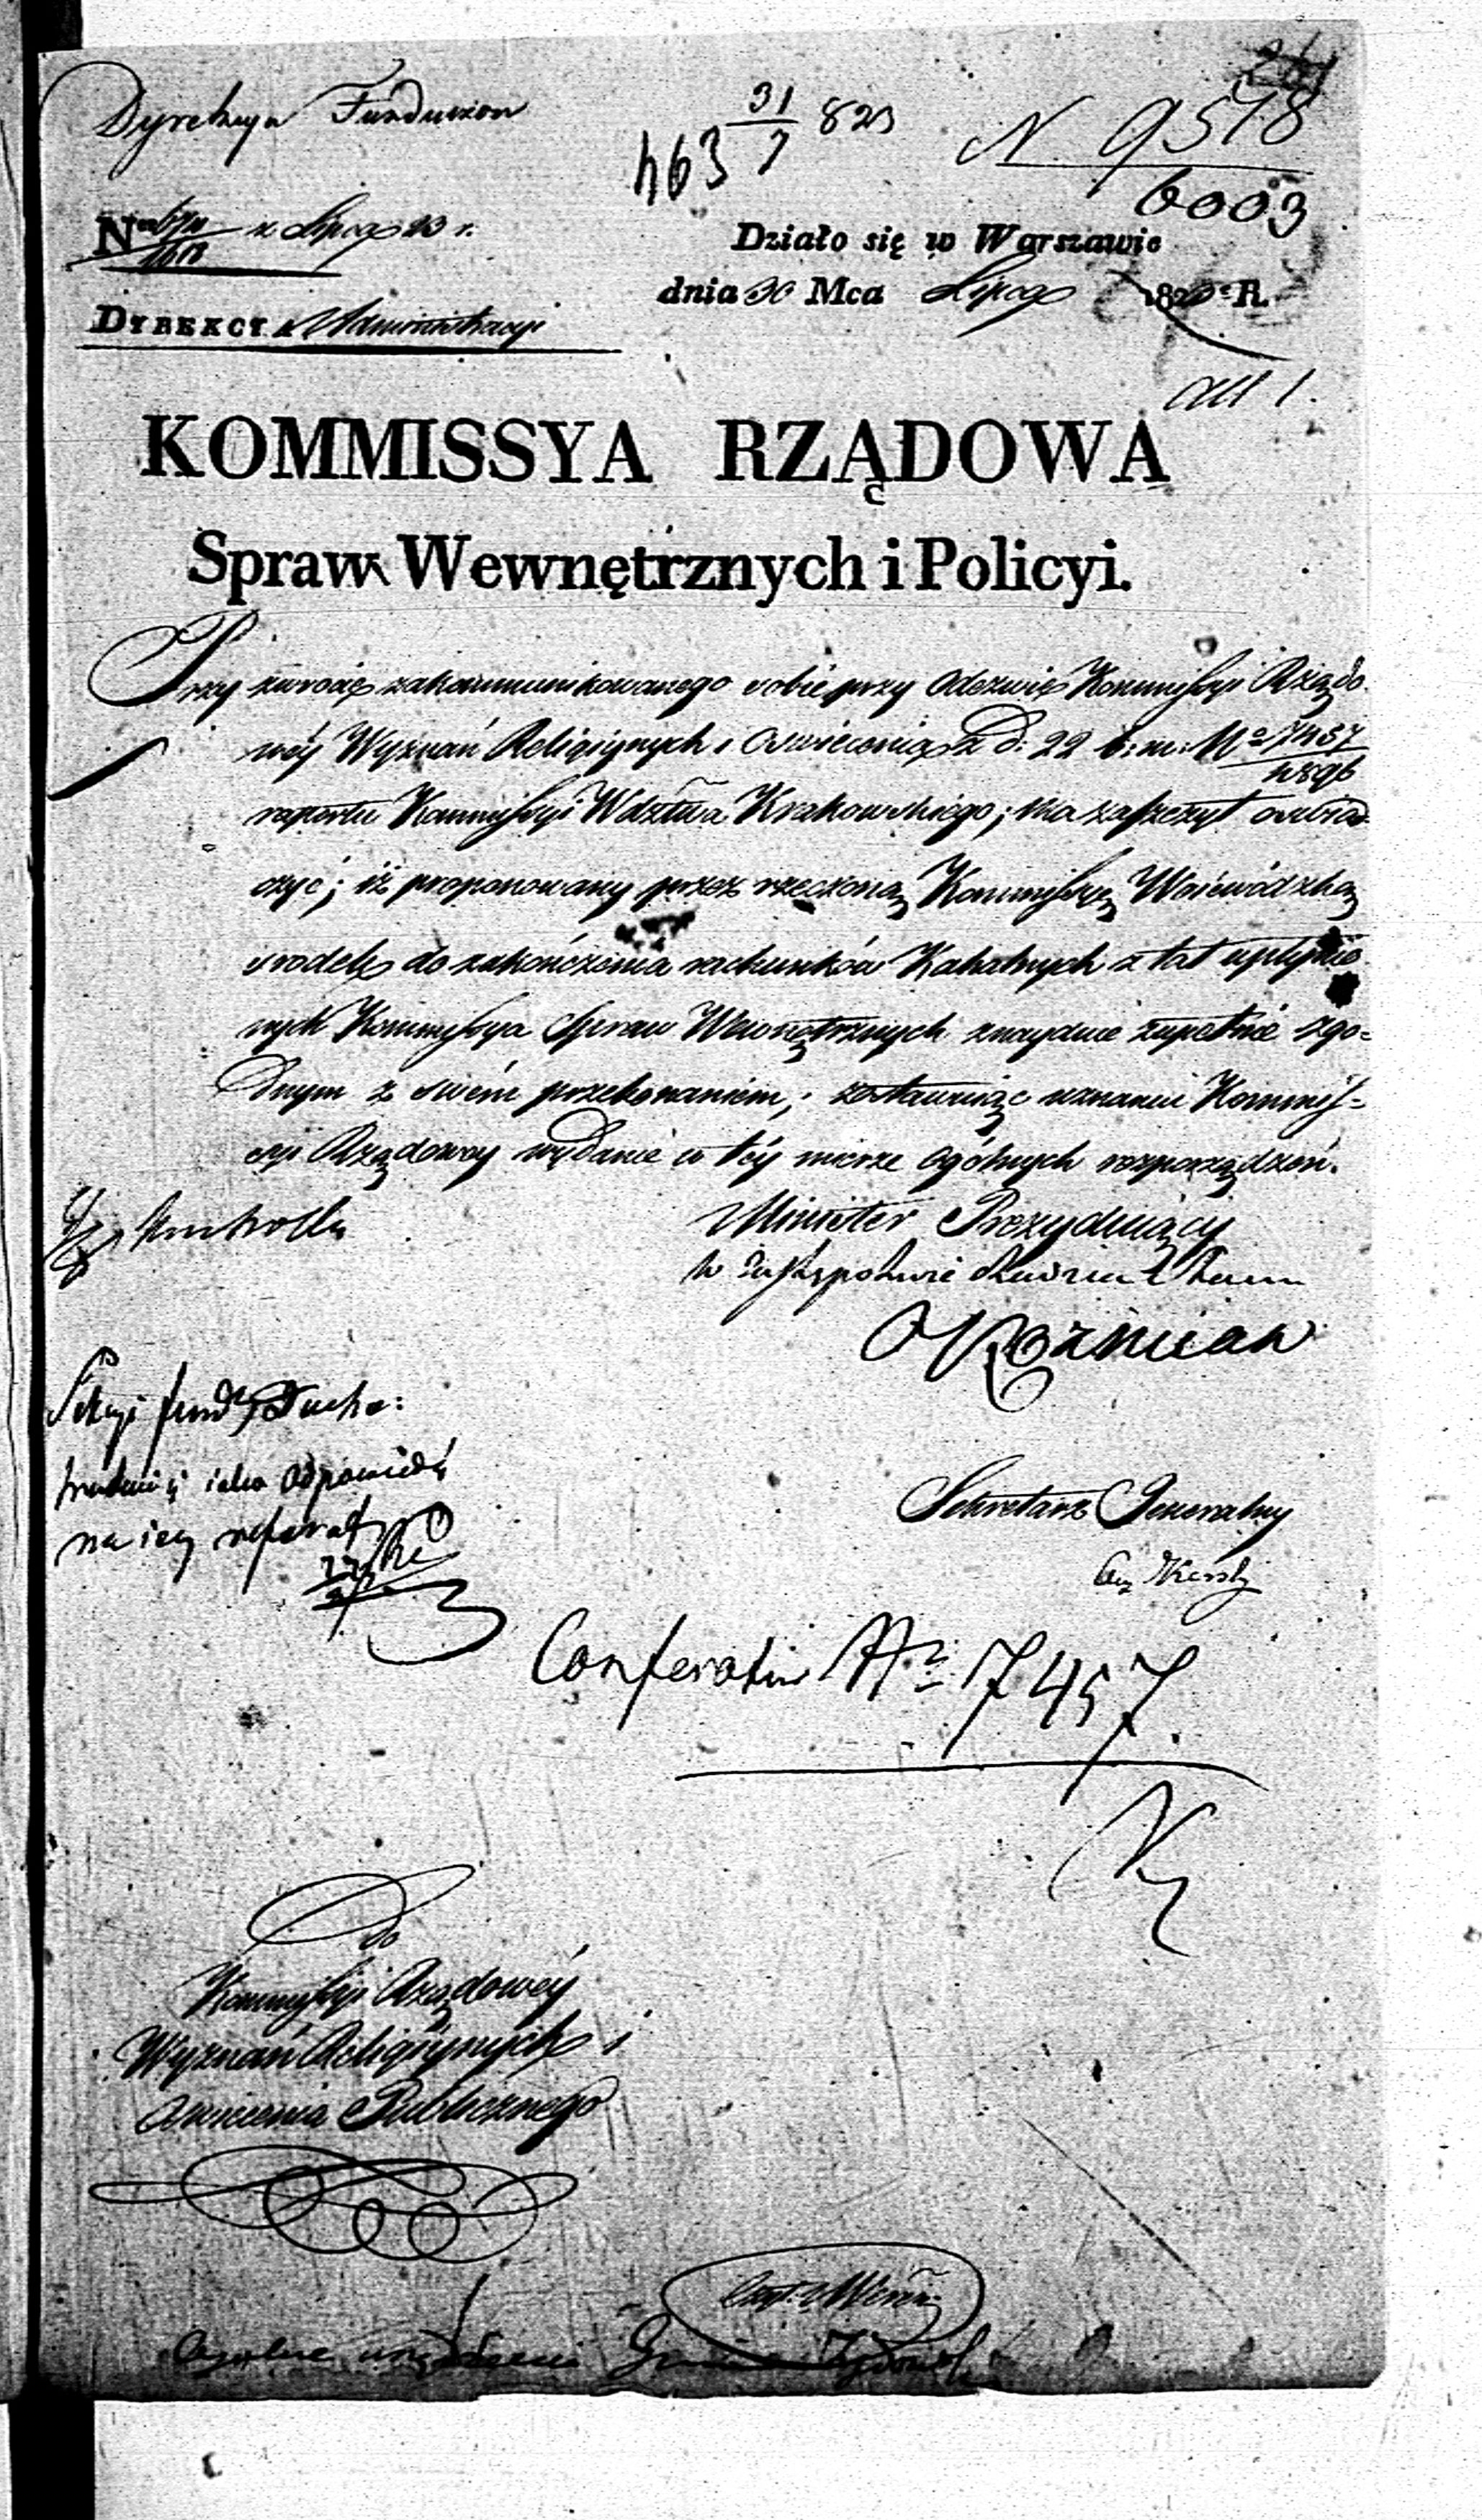 Dyrekcya Funduszow
31/7 823
463
N 9578
6003
z Lipca 23 r.
Działo się w Warszawie
dnia 30 Mca Lipca 1823 R.
DYREKCYA Administracyi
all 1.
KOMMISSYA RZĄDOWA
Spraw Wewnętrznych i Policyi.
Przy zwrocie zakommunikowanego sobie przy Odezwie Kommissyi Rządo-
wéy Wyznań Religiynych i Oswiecenia z d: 22 b: m: No 7457
raportu Kommissyi Wdztwa Krakowskiego; ma zaszczyt oswiad-
czyć; iż proponowany przez rzeczoną Kommissyę Woiewódzką
srodek do zakończenia rachunków Kahalnych z lat upłynio-
nych Kommissya Spraw Wewnętrznych znayduie zupełnie zgo-
dnym z swém przekonaniem; zostawuiąc uznaniu Kommis-
syi Rządowey wydanie w téy mierze ogólnych rozporządzeń.
Kontrolla
Minister Prezyduiący
w Zastępstwie Radzca Stanu
Koźmian
Sekcyi fund. Ducho:
iako odpowiedź
na iey referat
Sekretarz Generalny
Conferatur Nr 7457.
Do
Kommissyi Rządowéy
Wyznań Religiynych i
Oswiecenia Publicznego
Ogolne urządzenie Gmin Żydowsk.